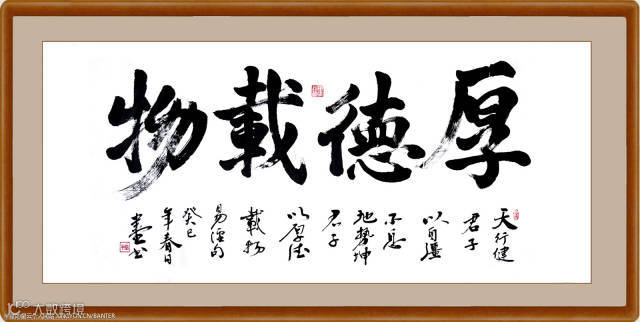 厚德載物
天行健
君子
以自彊
不息
地勢坤
君子
以厚德
載物
易經句
癸巳
年春日
書
大数跨境